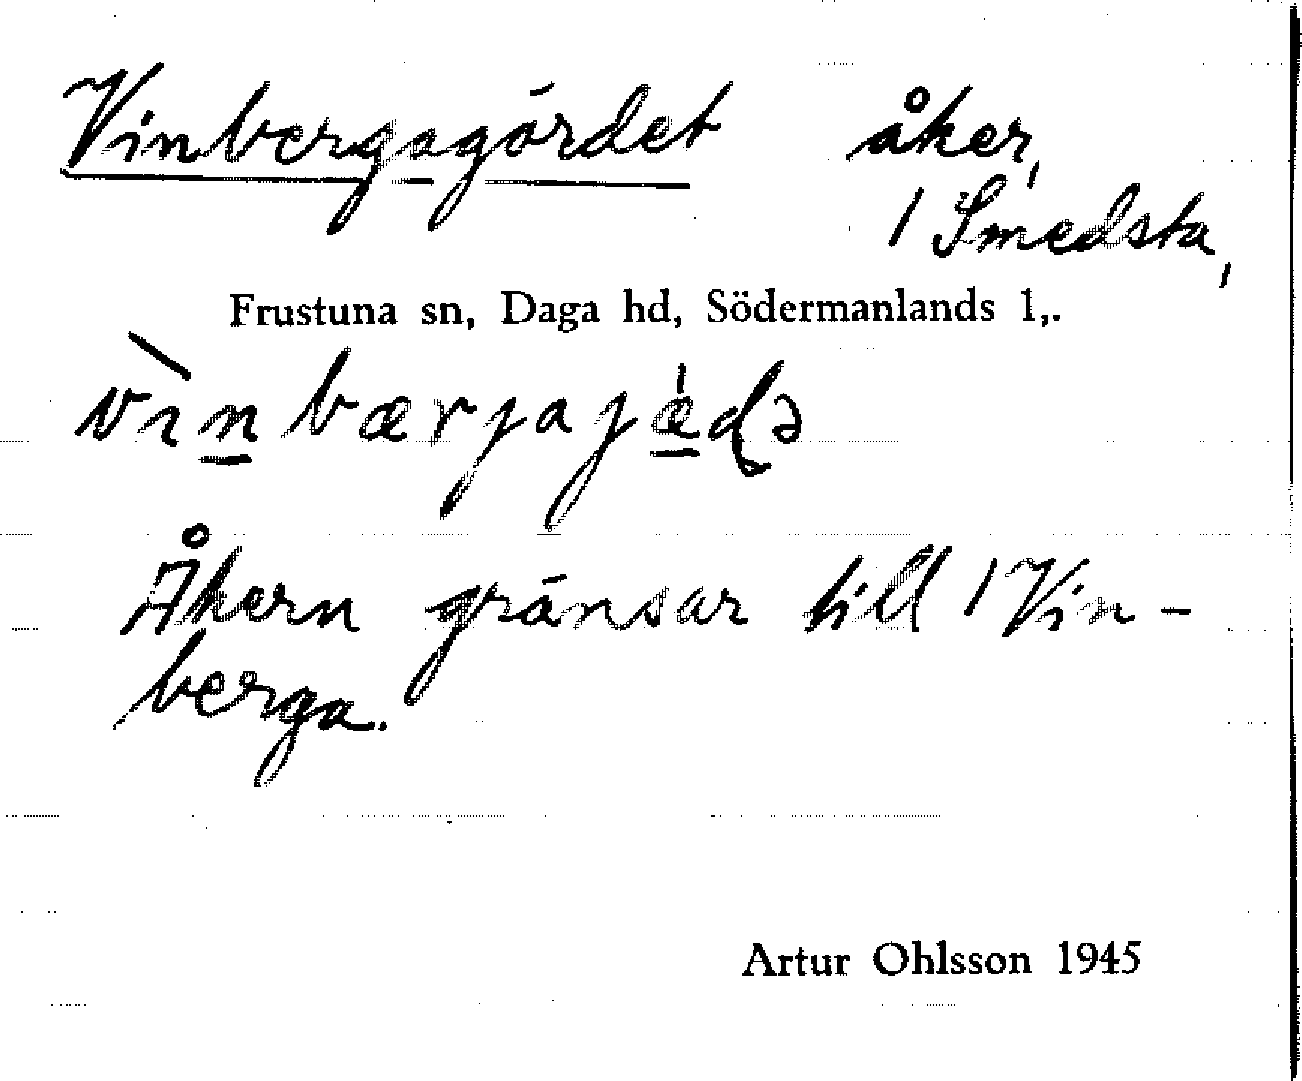 Vinbergagärdet åker,
/ Smedsta,
Frustuna sn, Daga hd, Södermanlands l,.
vìn̲bærjajǽ̲ḍə
Åkern gränsar till / Vin-
berga.
Artur Ohlsson 1945